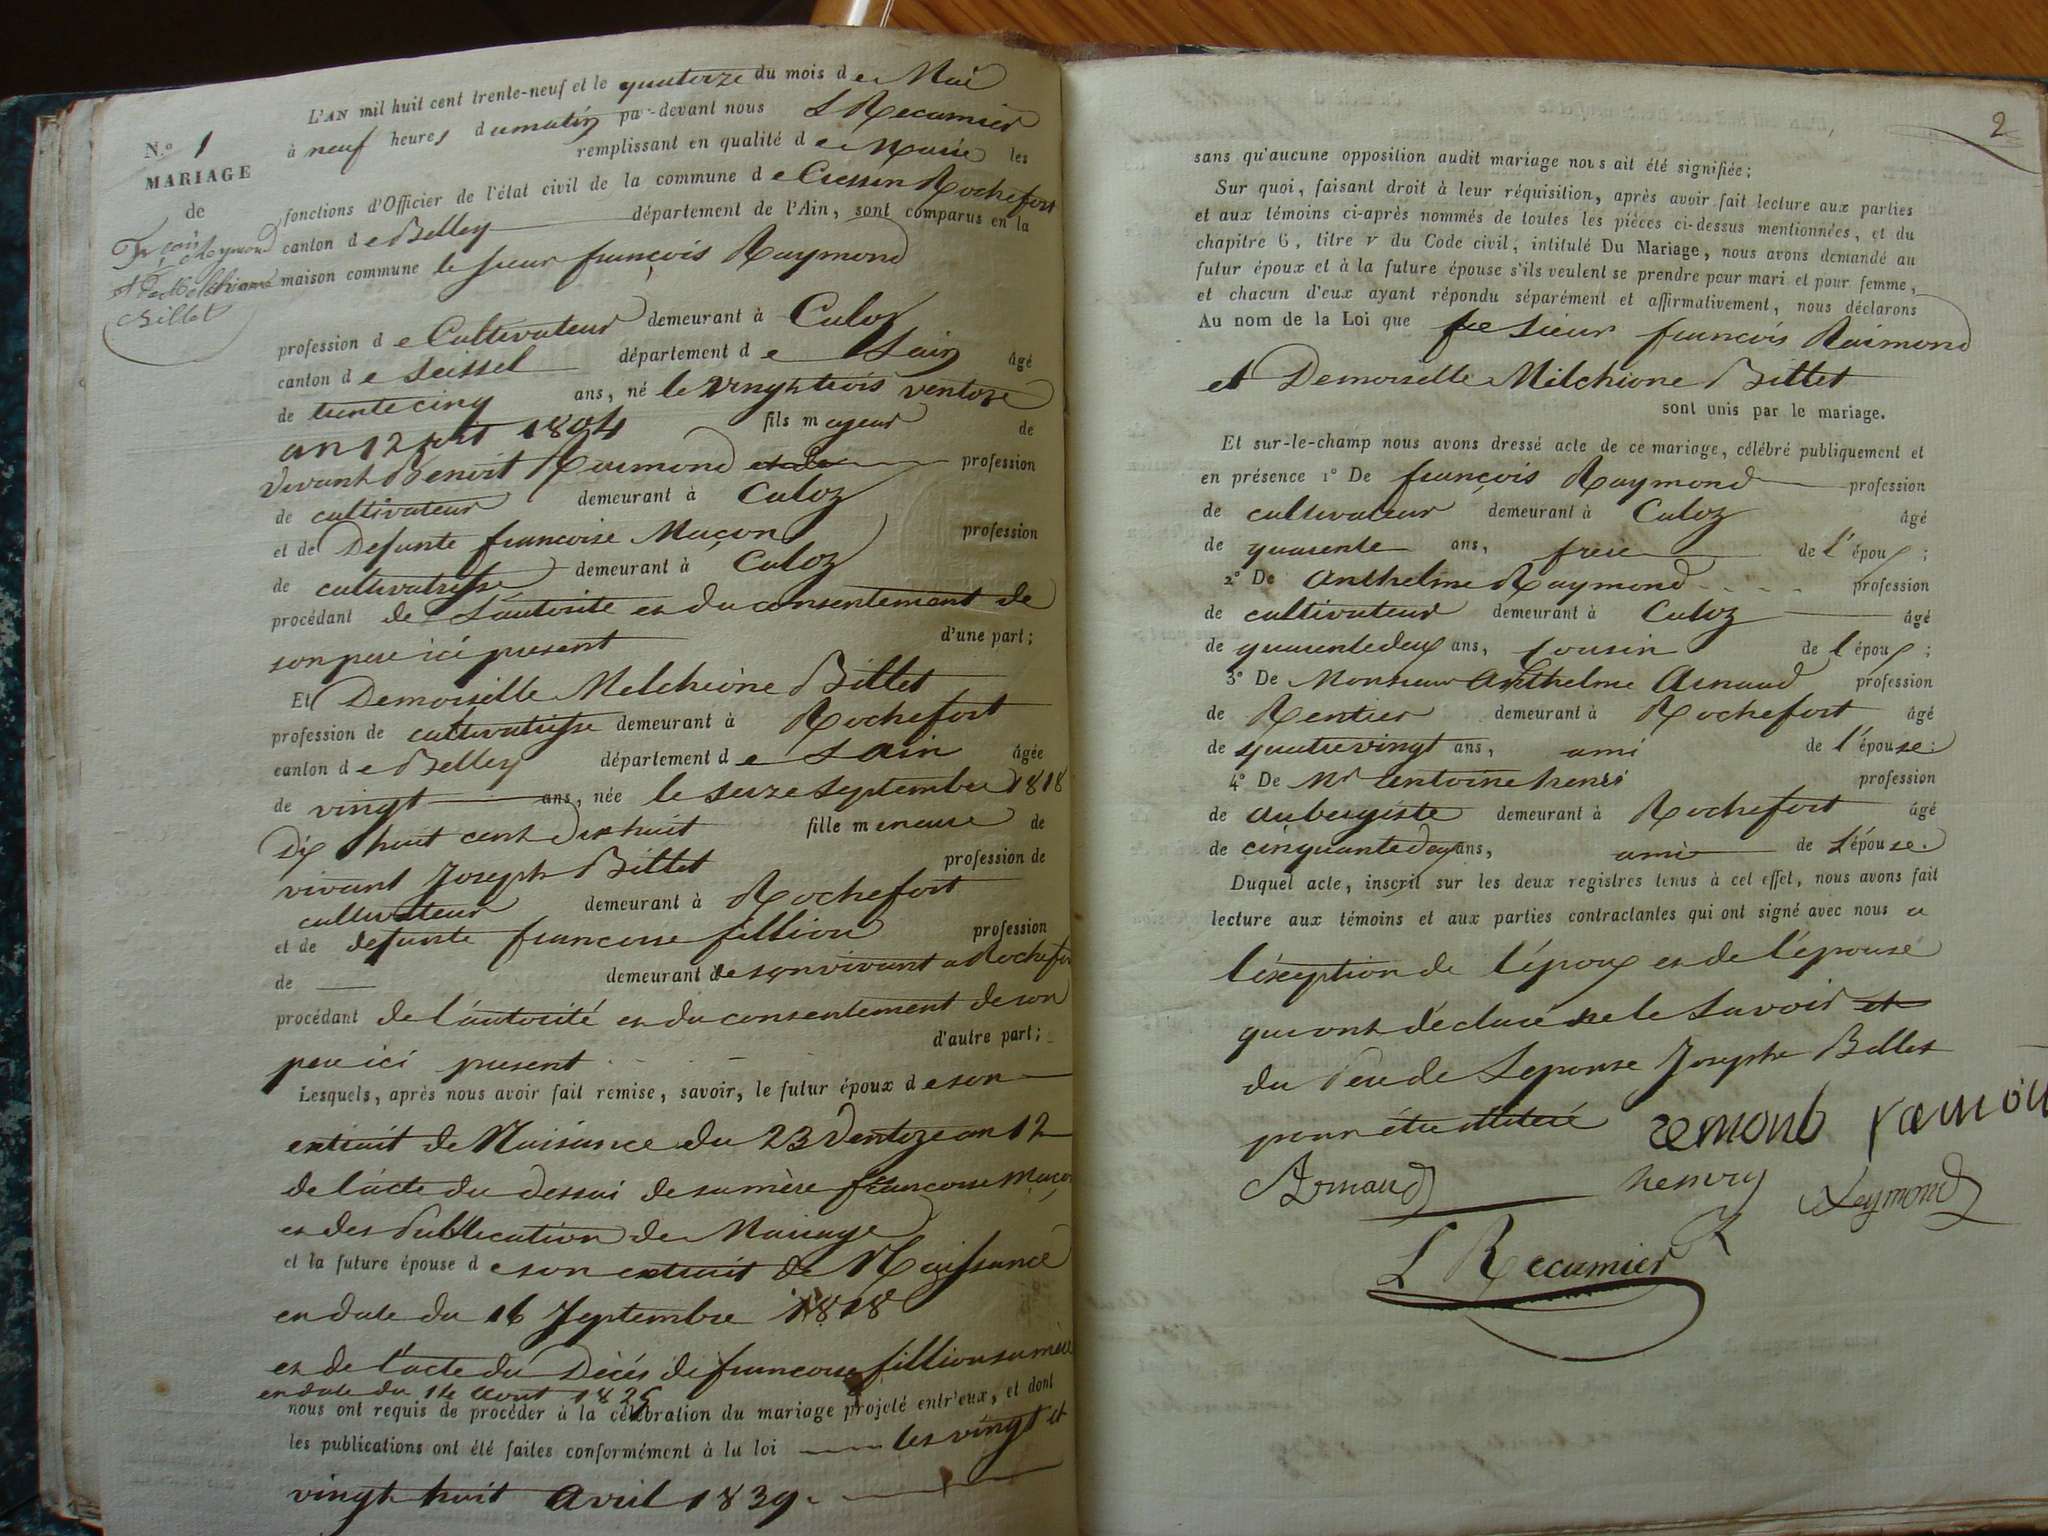 N.o 1
MARIAGE
de
françois Raymond
et de Melchionne
Billet
L'AN mil huit cent trente-neuf et le quatorze du mois de Mai
à neuf heures du matin par-devant nous L Récamier
remplissant en qualité de Maire les
fonctions d'Officier de l'état civil de la commune de Cressin Rochefort
canton de Belley département de l'Ain, sont comparus en la
maison commune le sieur françois Raymond
profession de Cultivateur demeurant à Culoz
canton de Seissel département de Lain âgé
de trente cinq ans, né le vingt trois ventoze
an 12 soit 1804 fils majeur de
vivant Benoit Raimond profession
de cultivateur demeurant à Culoz
et de Defunte francoise Maçon profession
de cultivatrisse demeurant à Culoz
procédant de L'autorité et du consentement de
son pere ici present d'une part;
Et Demoiselle Melchione Billet
profession de cultivatrisse demeurant à Rochefort
canton de Belley département de Lain âgée
de vingt ans, née le seize septembre 1818
Dix huit cent dix huit fille mineure de
vivant Joseph Billet profession de
cultivateur demeurant à Rochefort
et de defunte francoise fillion profession
de demeurant de son vivant a Rochefort
procédant de l'autorité et du consentement de son
pere ici present d'autre part;
Lesquels, après nous avoir fait remise, savoir, le futur époux de son
extrait de Naisance du 23 Ventoze an 12
de l'acte du dessai de sa mère francoise Maçon
et des Publication de Mariage
et la future épouse de son extrait de Naissance
en date du 16 Septembre 1818
et de l'acte du Décés de francoise fillion sa mère
en date du 14 aout 1825
nous ont requis de procéder à la célébration du mariage projeté entr'eux, et dont
les publications ont été faites conformément à la loi les vingt et
vingt huit avril 1839.
2
sans qu'aucune opposition audit mariage nous ait été signifiée;
Sur quoi, faisant droit à leur réquisition, après avoir fait lecture aux parties
et aux témoins ci-après nommés de toutes les pièces ci-dessus mentionnées, et du
chapitre 6, titre v du Code civil, intitulé Du Mariage, nous avons demandé au
futur époux et à la future épouse s'ils veulent se prendre pour mari et pour femme,
et chacun d'eux ayant répondu séparément et affirmativement, nous déclarons
Au nom de la Loi que le sieur francois Raimond
et Demoiselle Milchione Billet
sont unis par le mariage.
Et sur-le-champ nous avons dressé acte de ce mariage, célébré publiquement et
en présence 1o De françois Raymond profession
de cultivateur demeurant à Culoz âgé
de quarente ans, frere de l'époux;
2o De Anthelme Raymond profession
de cultivateur demeurant à Culoz âgé
de quarente deux ans, cousin de l'époux;
3o De Monsieur Anthelme Arnaud profession
de Rentier demeurant à Rochefort âgé
de quatrevingt ans, ami de l'épouse;
4o De Mr antoine henri profession
de aubergiste demeurant à Rochefort âgé
de cinquante deux ans, ami de l'épouse.
Duquel acte, inscrit sur les deux registres tenus à cet effet, nous avons fait
lecture aux témoins et aux parties contractantes qui ont signé avec nous a
l'éxeption de l'époux et de l'épouse
qui ont déclaré ne le Savoir et
du Pere de Lepouse Joseph Billet
pour être illiteré remond
Arnaud henry Reymond
L Récamier